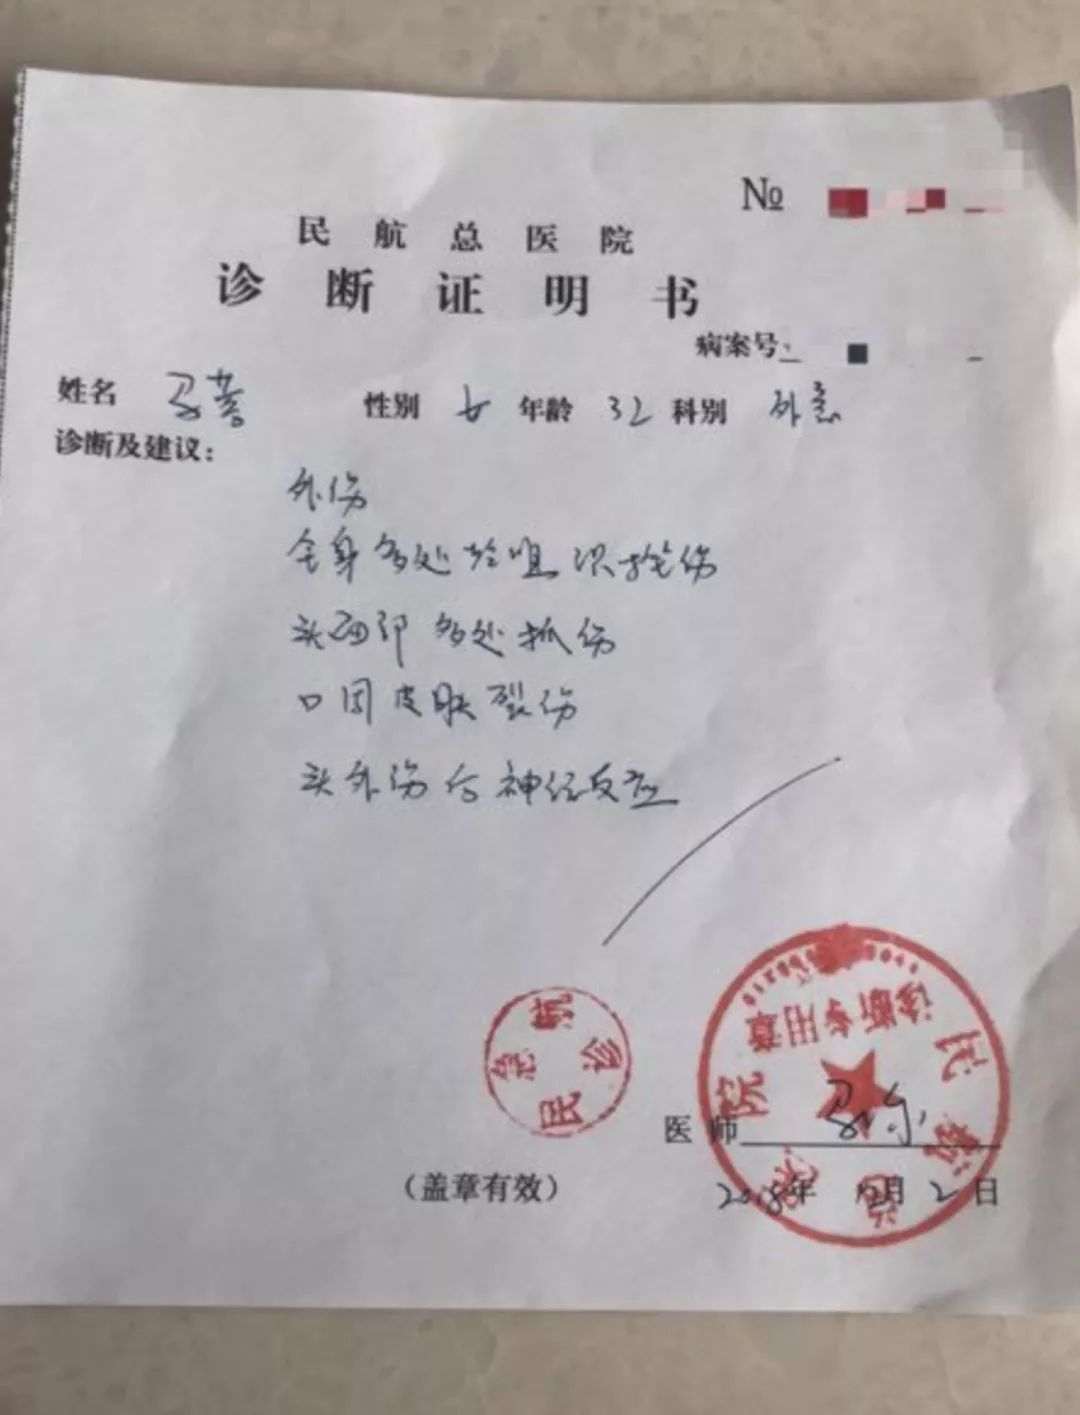 №
民航总医院
诊断证明书
病案号:
姓名 马蓉 性别 女 年龄 32 科别 外急
诊断及建议:
外伤
全身多处软组织挫伤
头面部多处抓伤
口周皮肤裂伤
头外伤后神经反应
民航急诊
民航总医院
诊断专用章
医师
(盖章有效)
2018年12月2日